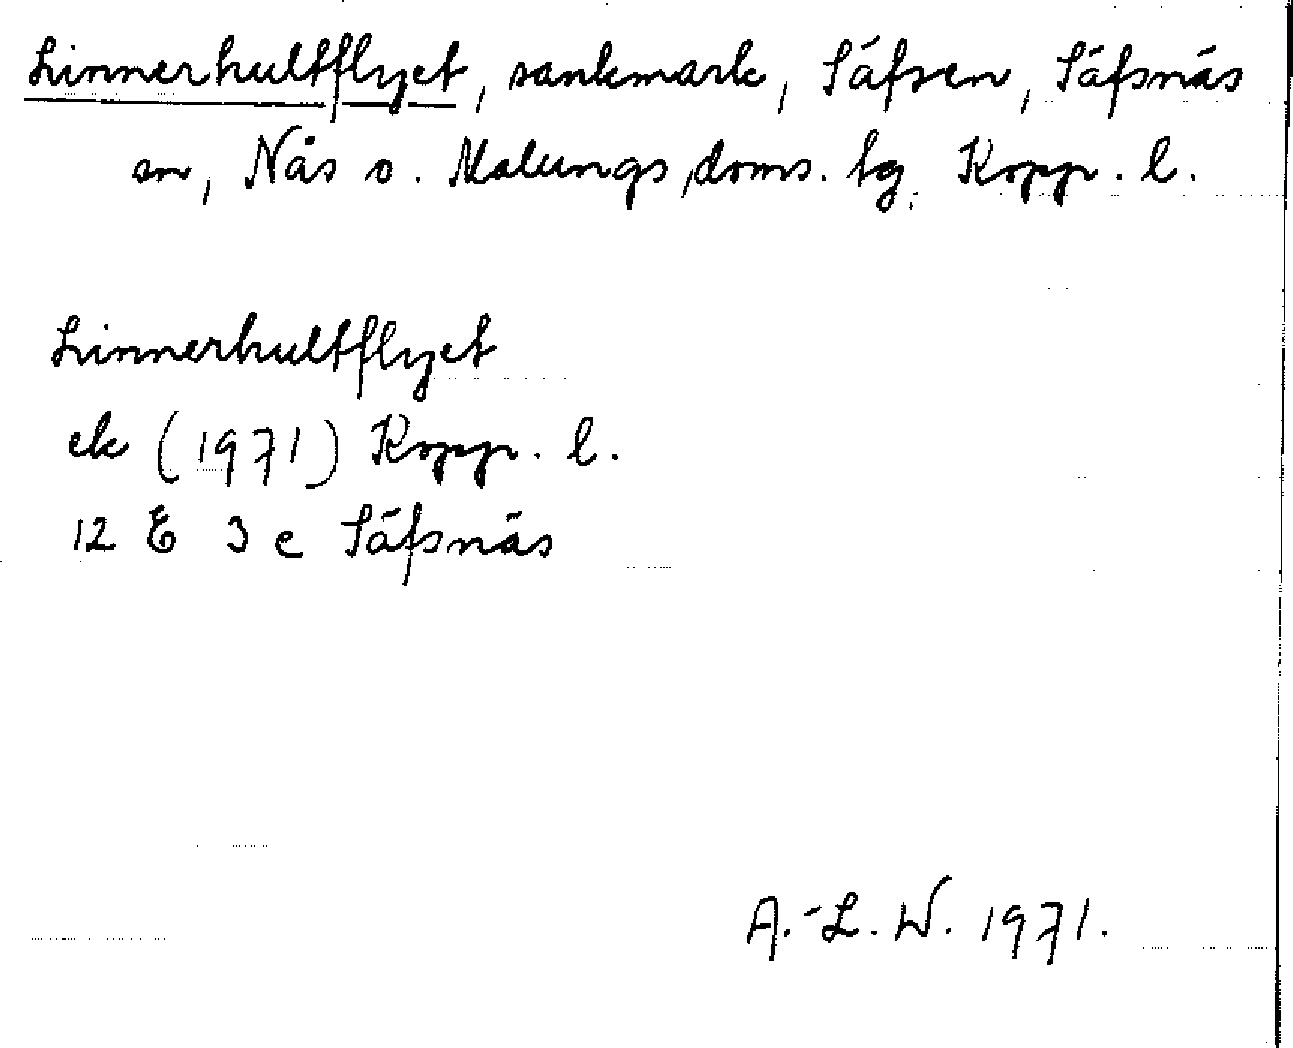 Linnerhultflyet, sankmark, Säfsen, Säfsnäs
sn, Nås o. Malungs doms. tg. Kopp. l.
Linnerhultflyet
ek (1971) Kopp. l.
12 E 3 c Säfsnäs
A.-L. W. 1971.